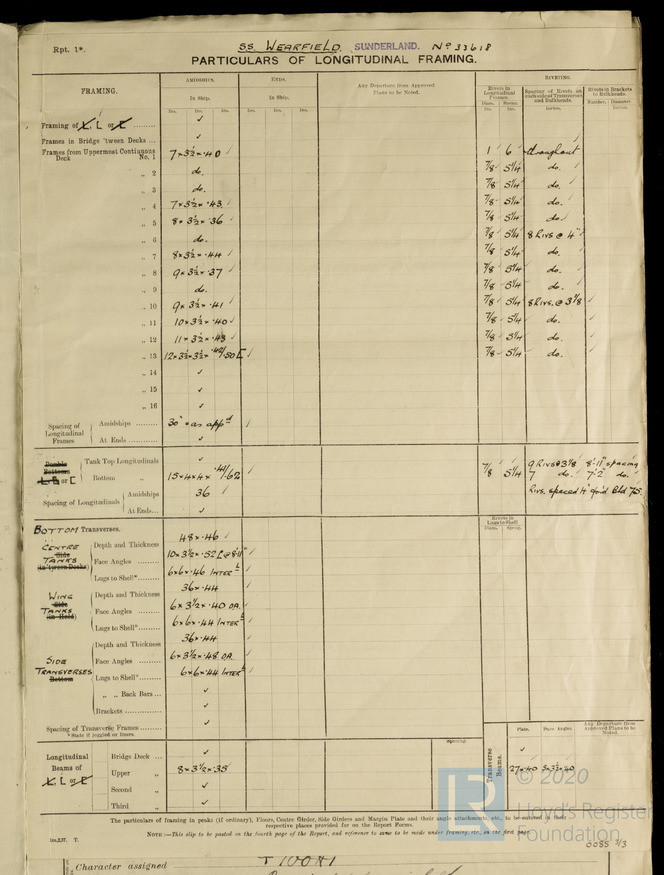 Rpt. 1*.
SS WEARFIELD. SUNDERLAND. No 33618
PARTICULARS OF LONGITUDINAL FRAMING.
FRAMING.
AMIDSHIPS.
ENDS.
Any Departure from Approved Plans to be Noted.
RIVETING.
In Ship.
In Ship.
Rivets in Longitudinal Frames.
Spacing of Rivets on each side of Transverses and Bulkheads.
Rivets in Brackets to Bulkheads.
Ins. Ins. Ins. Ins. Ins. Ins.
Diam. Spacing.
Number. Diameter
Framing of L, L or L ......... ✓
Frames in Bridge 'tween Decks ... ✓
Frames from Uppermost Continuous Deck No. 1 7 × 3½ × .40 ✓ 1 6 throughout
" 2 do. 7/8 5¼ do.
" 3 do. 7/8 5¼ do.
" 4 7 × 3½ × .43 7/8 5¼ do.
" 5 8 × 3½ × .36 7/8 5¼ do.
" 6 do. 7/8 5¼ 8 Rivs @ 4"
" 7 8 × 3½ × .44 7/8 5¼ do.
" 8 9 × 3½ × .37 7/8 5¼ do.
" 9 do. 7/8 5¼ do.
" 10 9 × 3½ × .41 7/8 5¼ 8 Rivs. @ 3 7/8
" 11 10 × 3½ × .40 7/8 5¼ do.
" 12 11 × 3½ × .43 7/8 5¼ do.
" 13 12 × 3½ × 3½ × .42/.50 [ 7/8 5¼ do.
" 14 ✓
" 15 ✓
" 16 ✓
Spacing of Longitudinal Frames
Amidships ......... 30" & as appd
At Ends ............ ✓
Double Bottoms L, B or [
Tank Top Longitudinals ✓
Bottom " 15 × 4 × 4 × .41/.62 7/8 5¼
9 Rivs @ 3 7/8 8'-11" spacing
7 do. 7'-2" do.
Spacing of Longitudinals
Amidships 36
Rivs. spaced 4"
At Ends... ✓
Rivets in Lugs to Shell
Diam. Spcng.
BOTTOM Transverses.
CENTRE Side TANKS (in 'tween Decks)
Depth and Thickness 48 × .46
Face Angles ......... 10 × 3½ × .52 [ @ 8'11"
Lugs to Shell* ........ 6 × 6 × .46 INTER L
WING Side TANKS (in Hold)
Depth and Thickness 36 × .44
Face Angles ......... 6 × 3½ × .40 OA.
Lugs to Shell* ........ 6 × 6 × .44 INTER L
SIDE TRANSVERSES Bottom
Depth and Thickness 36 × .44
Face Angles ......... 6 × 3½ × .48 OA
Lugs to Shell* ........ 6 × 6 × .44 INTER L
" " Back Bars ... ✓
Brackets ............... ✓
Spacing of Transverse Frames ......... ✓
*State if joggled or liners.
Longitudinal Beams of L, L or L
Spacing.
Bridge Deck ... ✓
Upper " 8 × 3½ × .35
Second " ✓
Third " ✓
Transverse Beams.
Plate. Face Angles. Any Departure from Approved Plans to be Noted.
✓
27 × .40
The particulars of framing in peaks (if ordinary), Floors, Centre Girder, Side Girders and Margin Plate and their angle attachments, etc., to be entered in their
respective places provided for on the Report Forms.
NOTE:—This slip to be posted on the fourth page of the Report, and reference to same to be made under framing, etc., on the first page.
© 2020
Lloyd's Register
Foundation
0085 3/3
Character assigned